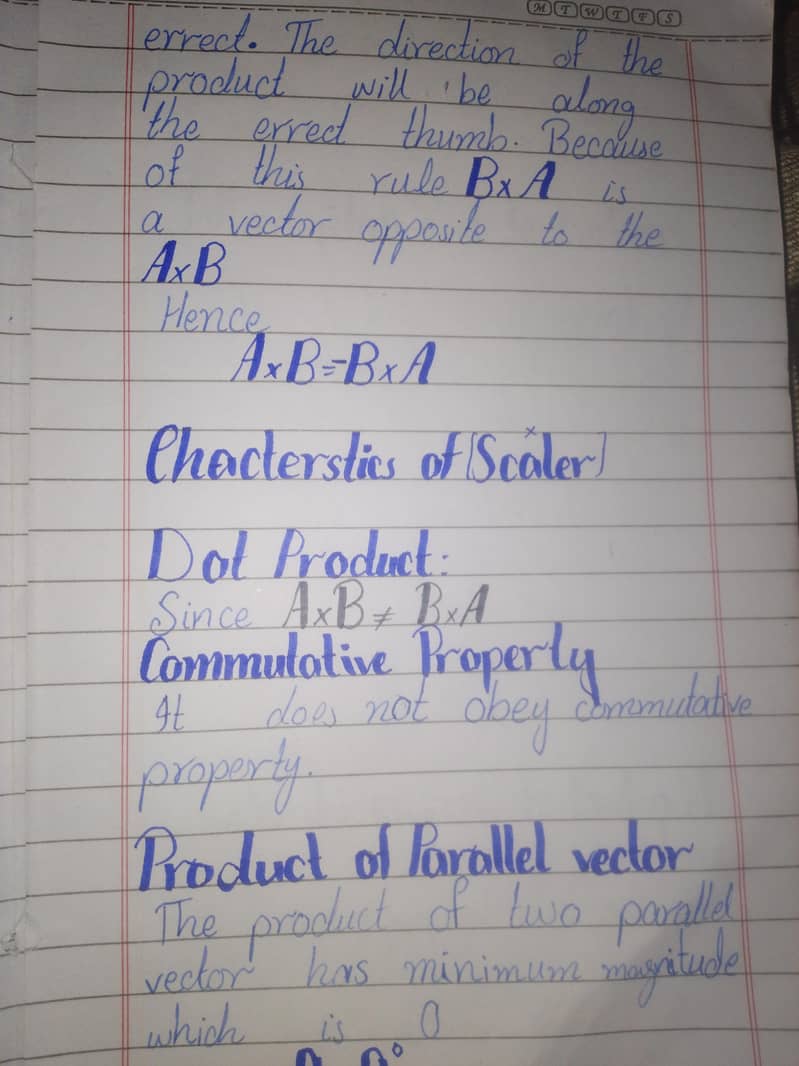 M T W T F S
errect. The direction of the
product will be along
the erred thumb. Because
of this rule BxA is
a vector opposite to the
AxB
Hence
AxB=-BxA
Chacterstics of [Scaler]
Dot Product:
Since AxB ≠ BxA
Commutative Property
It does not obey commutative
property.
Product of Parallel vector
The product of two parallel
vector has minimum magnitude
which is 0